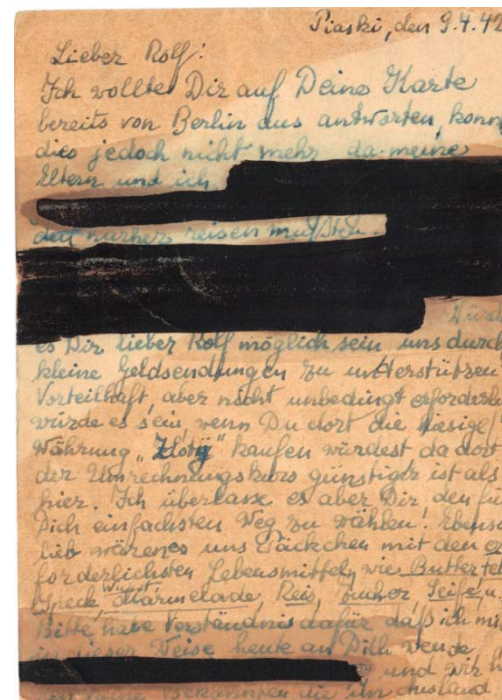 Piaski, den 9.4.42
Lieber Rolf:
Ich wollte Dir auf Deine Karte
bereits von Berlin aus antworten, konn
dies jedoch nicht mehr da meine
Eltern und ich
reisen mußten.
Würd
es Dir lieber Rolf möglich sein uns durch
kleine Geldsendungen zu unterstützen
Vorteilhaft, aber nicht unbedingt erforderli
würde es sein, wenn Du dort die hiesige
Währung „Zloty" kaufen würdest da dort
der Umrechnungskurs günstiger ist als
hier. Ich überlasse es aber Dir den fü
Dich einfachsten Weg zu wählen! Ebenso
lieb wären es uns Päckchen mit den er
forderlichsten Lebensmitteln wie Butter
Speck Wurst Marmelade Reis, Zucker Seife, u.
Bitte, habe Verständnis dafür daß ich mi
in dieser Weise heute an Dich wende,
und wir h
Bekannten die im Ausland